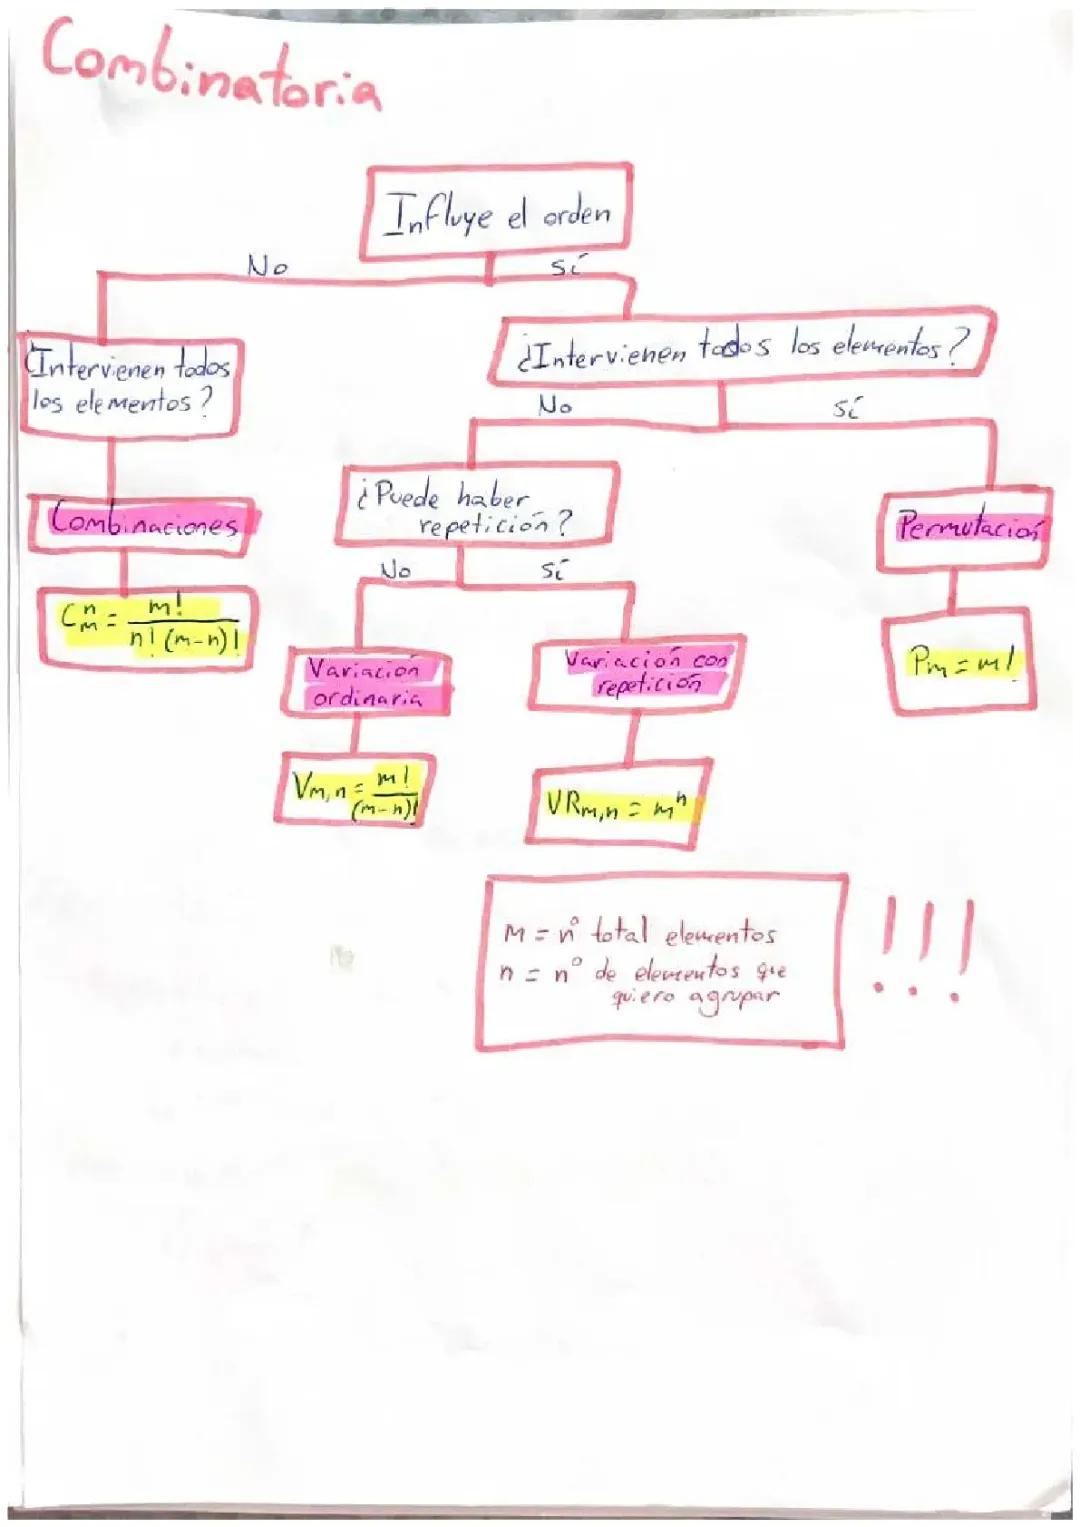 Combinatoria
Influye el orden
No
Sí
¿Intervienen todos
los elementos?
¿Intervienen todos los elementos?
No
Sí
Combinaciones
¿Puede haber
repetición?
Permutación
No
Sí
C_m^n = m! / n! (m-n)!
Variación
ordinaria
Variación con
repetición
Pm = m!
Vm,n = m! / (m-n)!
VRm,n = mⁿ
M = nº total elementos
n = nº de elementos que
quiero agrupar
!!!